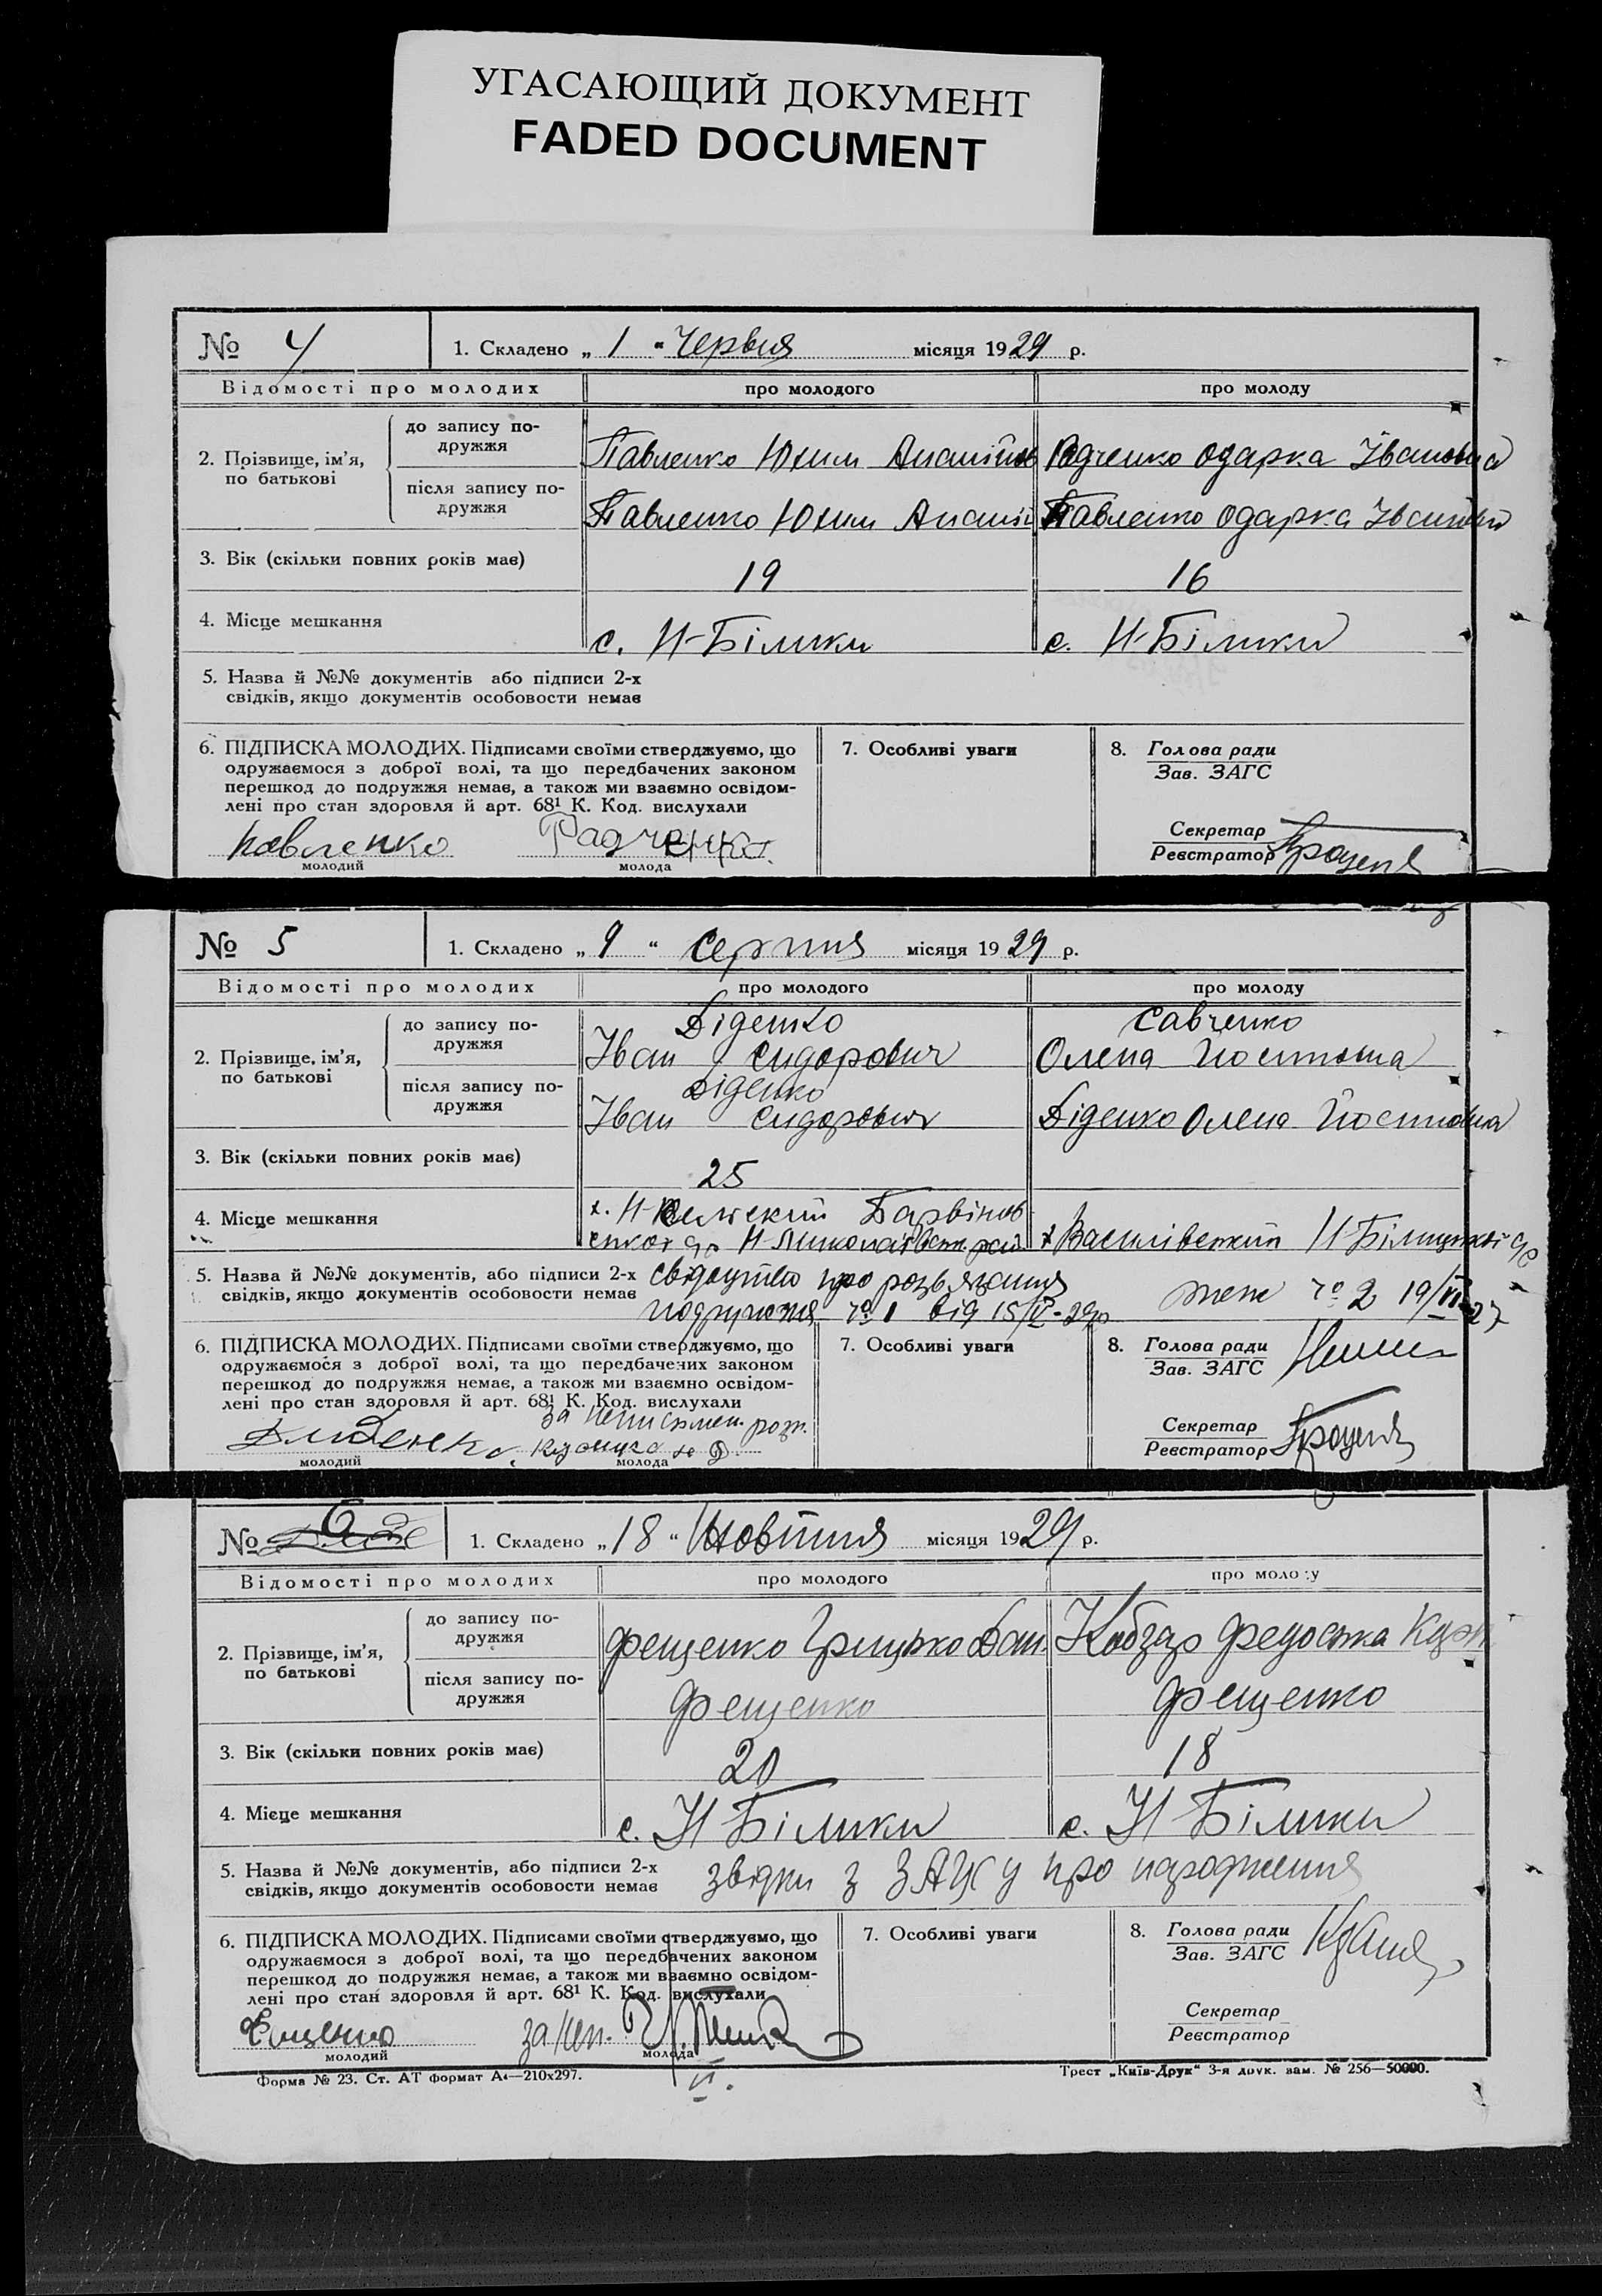 УГАСАЮЩИЙ ДОКУМЕНТ
FADED DOCUMENT
№ 4
1. Складено „ 1 “ Червня місяця 1929 р.
Відомості про молодих
про молодого
про молоду
2. Прізвище, ім’я, по батькові
до запису по-
дружжя
Павленко Юхим Ананійов
Радченко Одарка Івановна
після запису по-
дружжя
Павленко Юхим Ананій
Павленко Одарка Івановна
3. Вік (скільки повних років має)
19
16
4. Місце мешкання
с. Н-Білики
с. Н-Білики
5. Назва й №№ документів або підписи 2-х
свідків, якщо документів особовости немає
6. ПІДПИСКА МОЛОДИХ. Підписами своїми стверджуємо, що
одружаємося з доброї волі, та що передбачених законом
перешкод до подружжя немає, а також ми взаємно освідом-
лені про стан здоровля й арт. 68¹ К. Код. вислухали
Павленко
Радченко
молодий
молода
7. Особливі уваги
8. Голова ради
Зав. ЗАГС
Секретар
Реєстратор
№ 5
1. Складено „ 9 “ Серпня місяця 1929 р.
Відомості про молодих
про молодого
про молоду
2. Прізвище, ім’я,
по батькові
до запису по-
дружжя
Діденко
Іван Сидорович
Савченко
Олена Йостовна
після запису по-
дружжя
Діденко
Іван Сидорович
Діденко Олена Йостовна
3. Вік (скільки повних років має)
25
4. Місце мешкання
х. Барвінов
х Василівський Н-Білицької с/р
5. Назва й №№ документів, або підписи 2-х
свідків, якщо документів особовости немає
свідоцтво про розвязання
подружжя № 1 від 15/VI-29р
теж № 2 19/VI-27
6. ПІДПИСКА МОЛОДИХ. Підписами своїми стверджуємо, що
одружаємося з доброї волі, та що передбачених законом
перешкод до подружжя немає, а також ми взаємно освідом-
лені про стан здоровля й арт. 68¹ К. Код. вислухали
за неписьмен. розп.
Диденко
молодий
молода
7. Особливі уваги
8. Голова ради
Зав. ЗАГС
Секретар
Реєстратор
№ 6
1. Складено „ 18 “ Жовтня місяця 1929 р.
Відомості про молодих
про молодого
про молоду
2. Прізвище, ім’я,
по батькові
до запису по-
дружжя
Фещенко Грицько Дан.
Кобзар Федоська
після запису по-
дружжя
Фещенко
Фещенко
3. Вік (скільки повних років має)
20
18
4. Місце мешкання
с. Н Білики
с. Н Білики
5. Назва й №№ документів, або підписи 2-х
свідків, якщо документів особовости немає
звідки з ЗАГСу про народження
6. ПІДПИСКА МОЛОДИХ. Підписами своїми стверджуємо, що
одружаємося з доброї волі, та що передбачених законом
перешкод до подружжя немає, а також ми взаємно освідом-
лені про стан здоровля й арт. 68¹ К. Код. вислухали
Фещенко
за неп.
молодий
молода
7. Особливі уваги
8. Голова ради
Зав. ЗАГС
Секретар
Реєстратор
Форма № 23. Ст. АТ формат А4—210x297.
Трест „Київ-Друк“ 3-я друк. зам. № 256—50000.